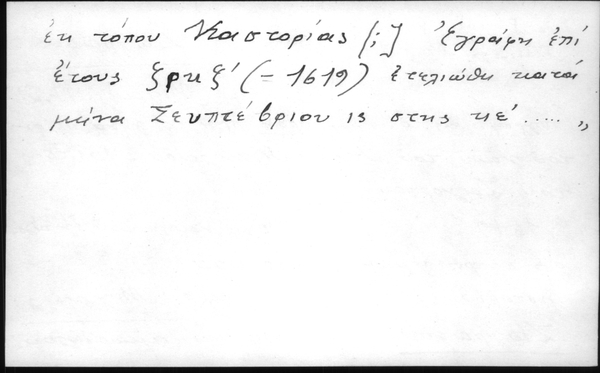 ἐκ τόπου Καστορίας [;] Ἐγράφη ἐπί
ἔτους ζρκζ' (= 1619) ἐτελιώθη κατά
μήνα Σευπτέβριον ις στης κε' ..... „